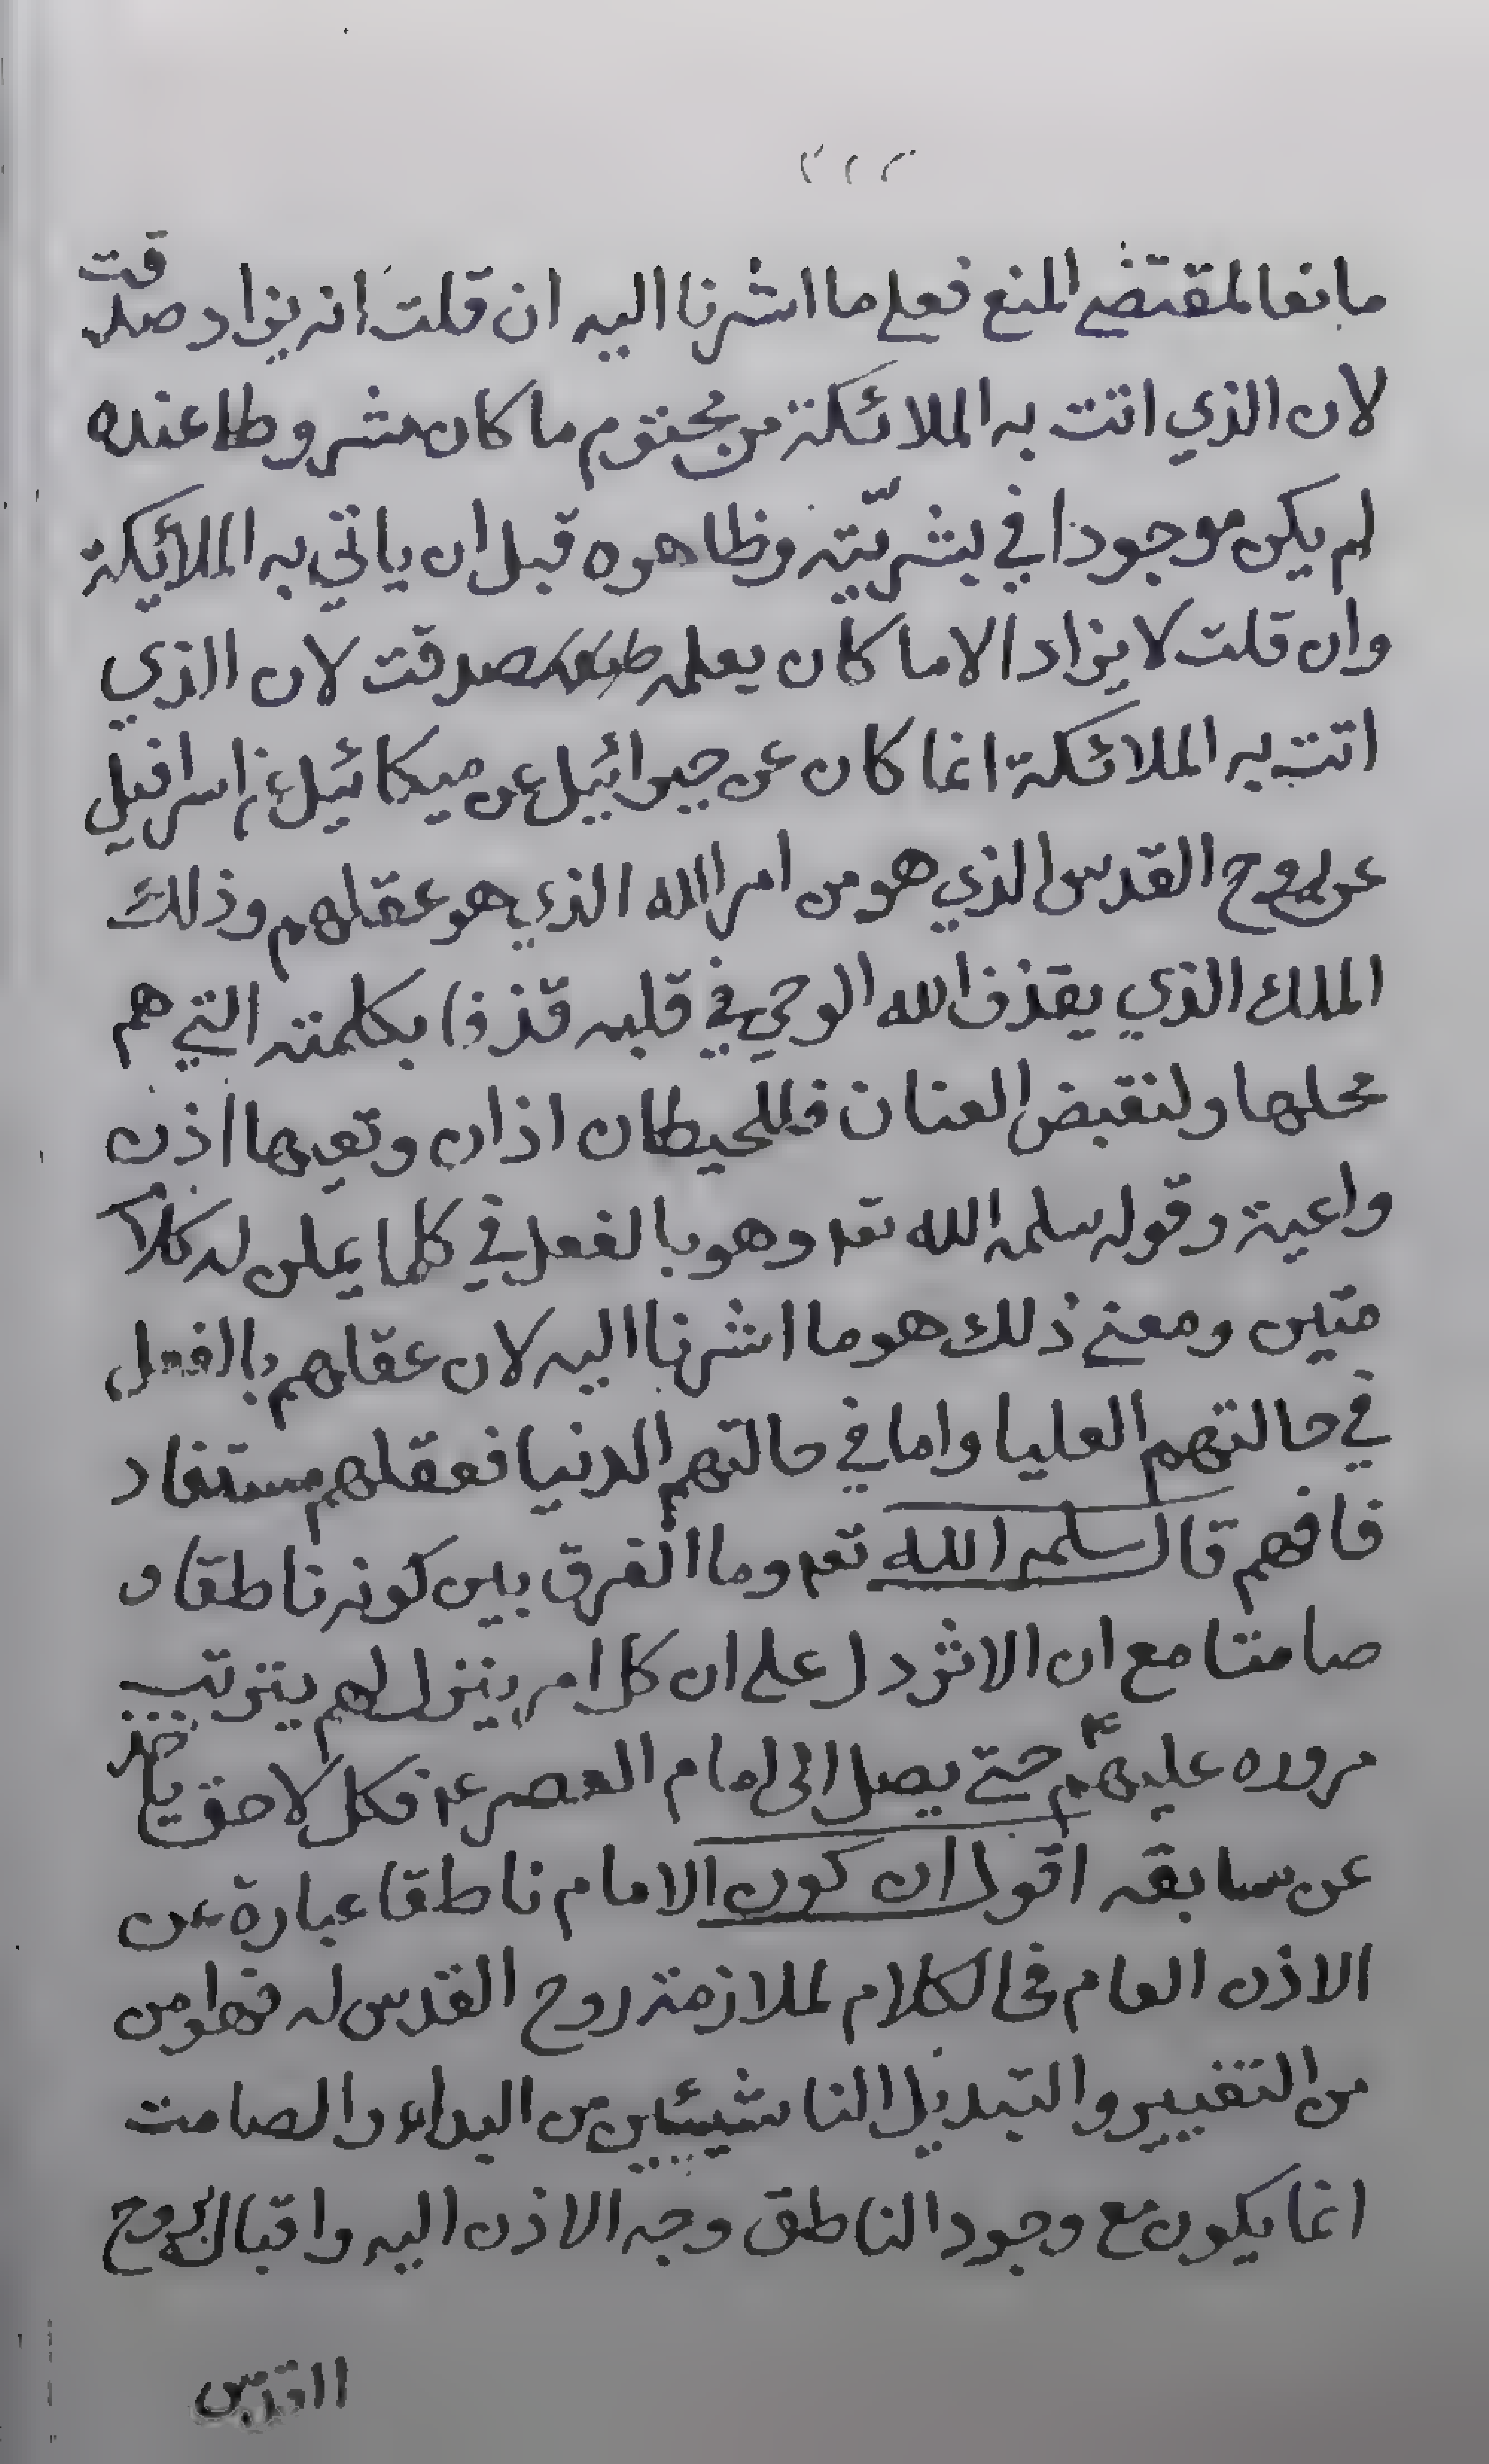 مانعا لمقتضى المنع فعلى ما اشرنا اليه ان قلت انه يزاد صدقت
لان الذي اتت به الملائكة من محتوم ما كان مشروطا عنده
لم يكن موجودا في بشريّته وظاهره قبل ان ياتي به الملائكة
وان قلت لا يزاد الا ما كان يعلمه صدقت لان الذي
اتت به الملائكة انما كان عن جبرائيل عن ميكائيل عن اسرافيل
عن روح القدس الذي هو من امر الله الذي هو عقلهم وذلك
الملك الذي يقذف الله الوحي في قلبه قذفا بكلمته التي هم
محلها ولنقبض العنان فللحيطان اذان وتعيها اذن
واعية وقوله سلمه الله تعه وهو بالفعل في كلما يمكن له كلام
متين ومعنى ذلك هو ما اشرنا اليه لان عقلهم بالفعل
في حالتهم العليا واما في حالتهم الدنيا فعقلهم مستفاد
فافهم قال سلمه الله تعه وما الفرق بين كونه ناطقا و
صامتا مع ان الاثر دل على ان كل امر ينزل لهم يترتب
مروره عليهم ع حتى يصل الى امام العصر ع فكل لاحق ياخذ
عن سابقه اقول ان كون الامام ناطقا عبارة عن
الاذن العام في الكلام لملازمة روح القدس له فهو امن
من التغيير والتبديل الناشيئين من البداء والصامت
انما يكون مع وجود الناطق وجه الاذن اليه واقبال روح
القدس